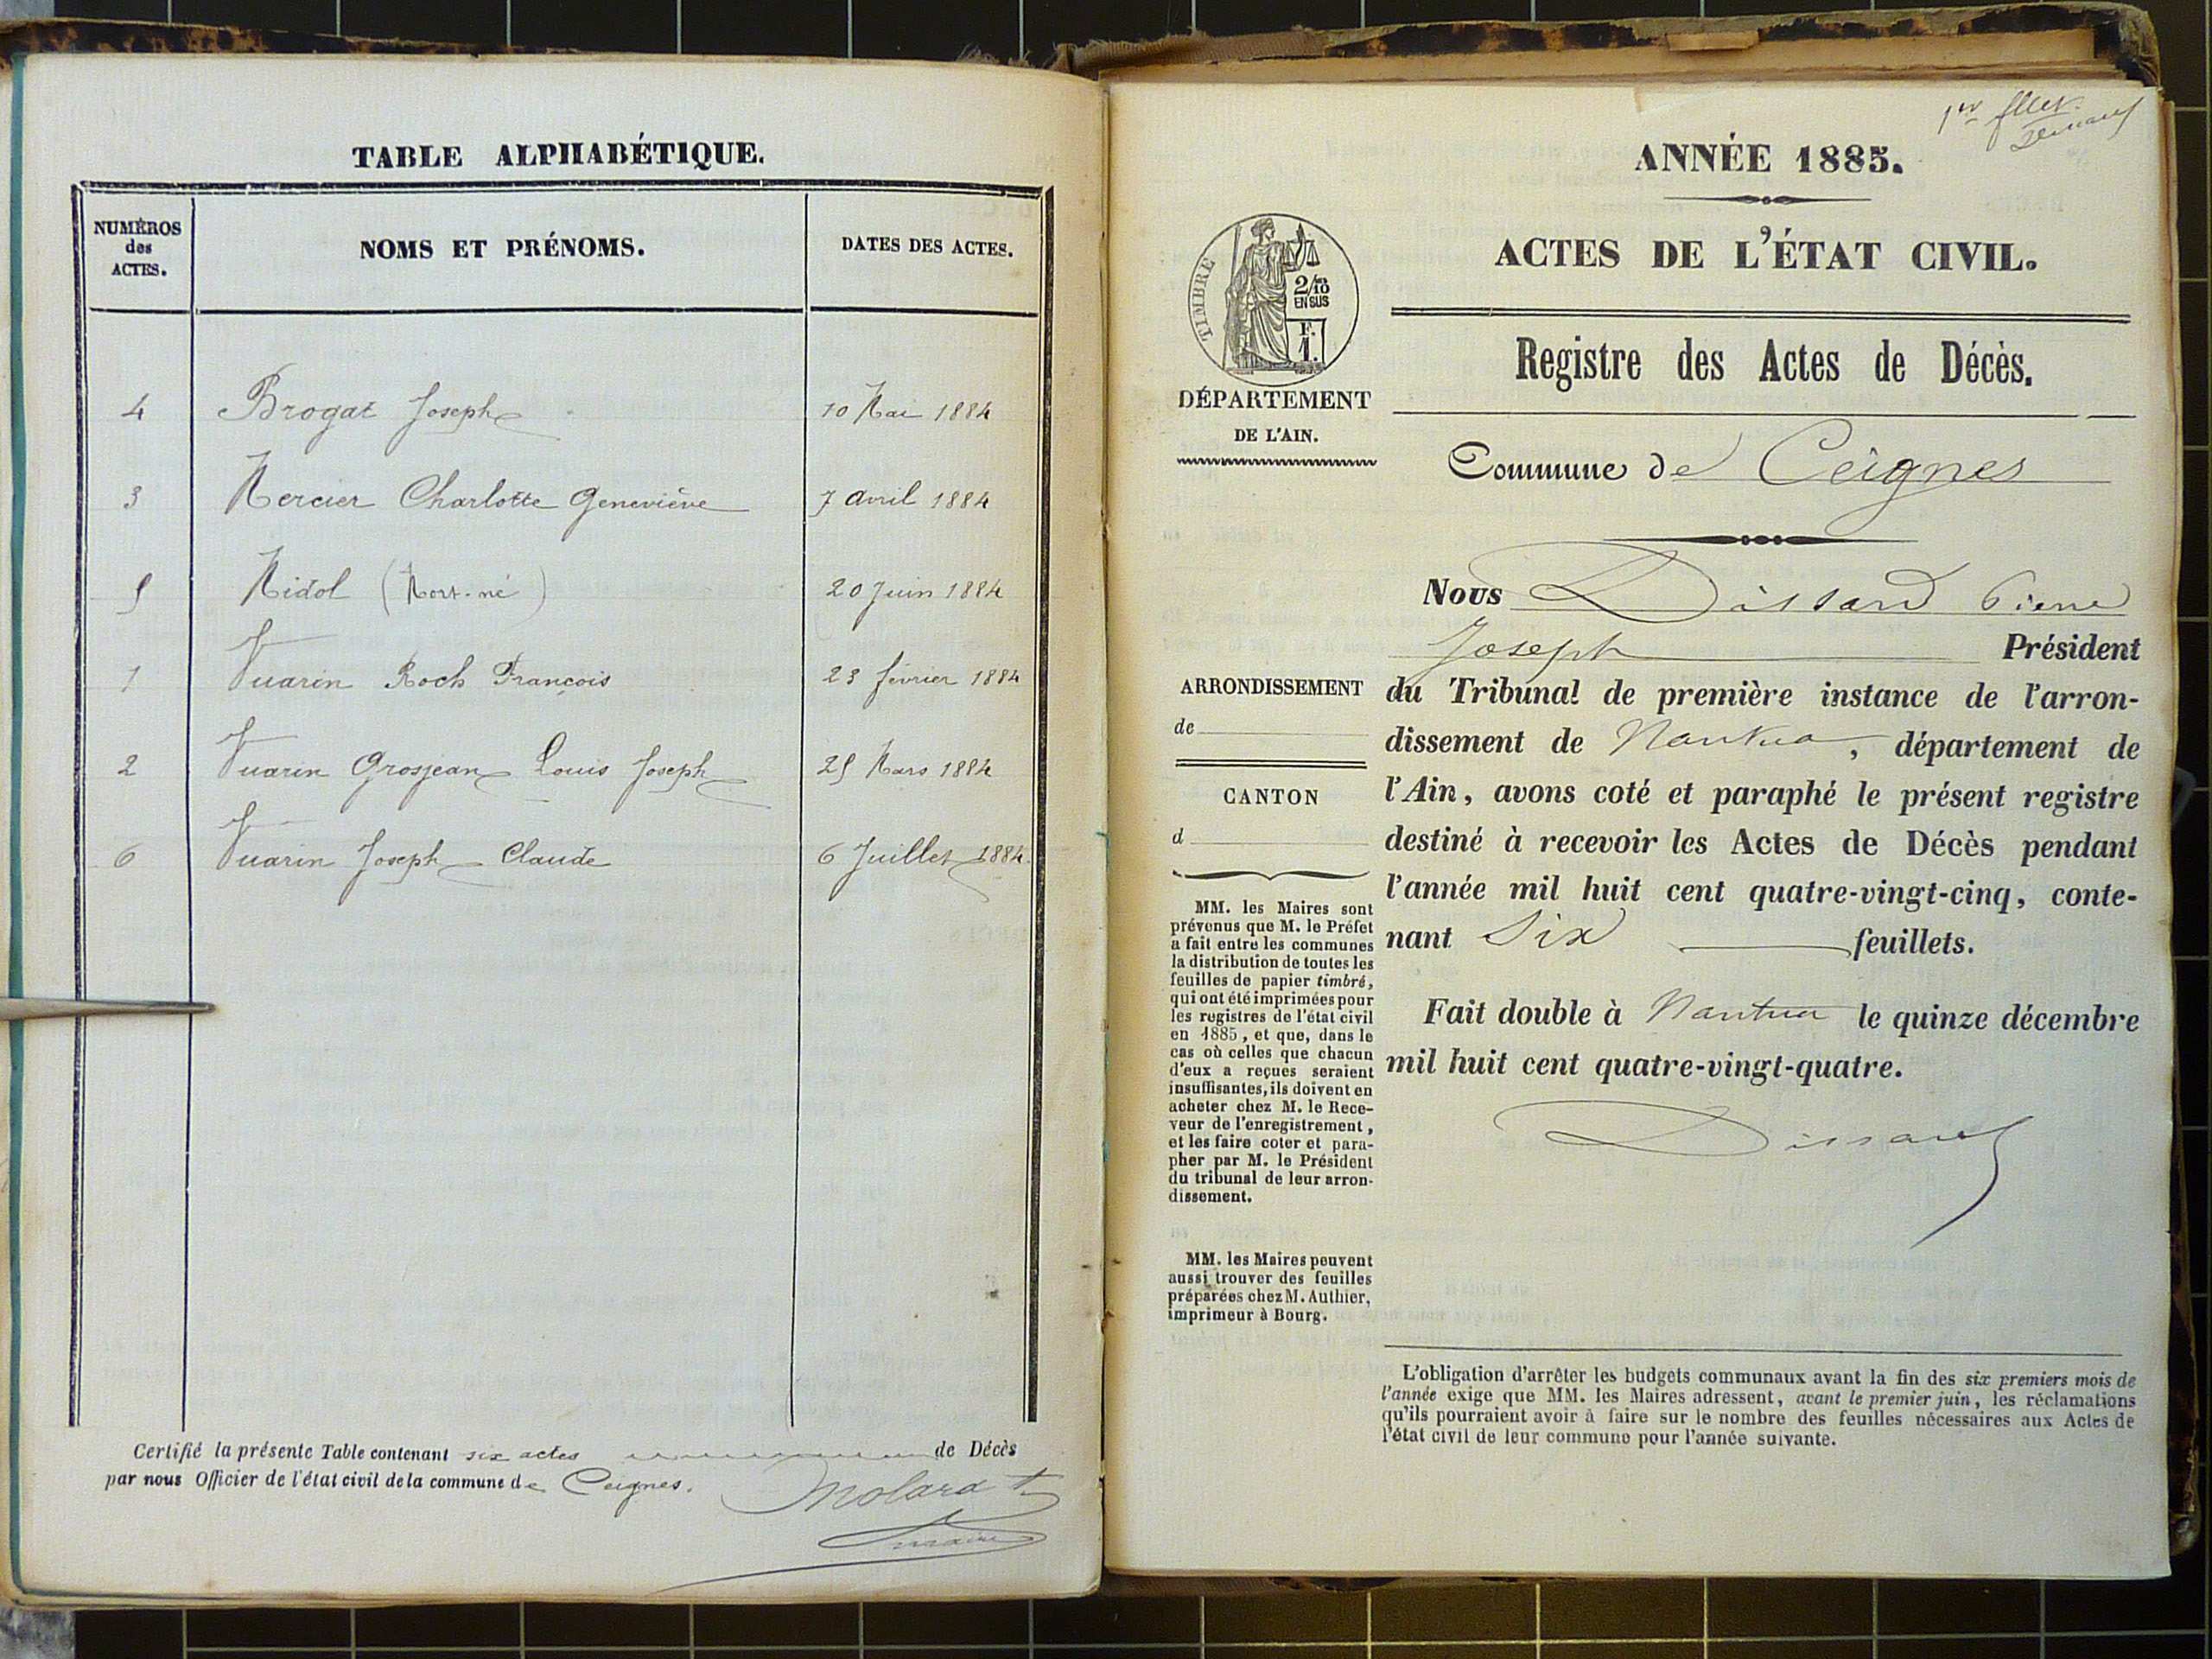 TABLE ALPHABÉTIQUE.
NUMÉROS des ACTES. NOMS ET PRÉNOMS. DATES DES ACTES.
4 Brogat Joseph 10 Mai 1884
3 Mercier Charlotte Geneviève 7 avril 1884
5 Midol (Mort-né) 20 Juin 1884
1 Vuarin Roch François 23 février 1884
2 Vuarin Grosjean Louis Joseph 25 Mars 1884
6 Vuarin Joseph Claude 6 Juillet 1884.
Certifié la présente Table contenant six actes de Décès
par nous Officier de l'état civil de la commune de Ceignes.
Molard
1er fllet.
Dissard
ANNÉE 1885.
ACTES DE L'ÉTAT CIVIL.
Registre des Actes de Décès.
TIMBRE
2/10 EN SUS
F. 1.
DÉPARTEMENT
DE L'AIN.
Commune de Ceignes
Nous Dissard Pierre
Joseph Président
du Tribunal de première instance de l'arron-
dissement de Nantua, département de
l'Ain, avons coté et paraphé le présent registre
destiné à recevoir les Actes de Décès pendant
l'année mil huit cent quatre-vingt-cinq, conte-
nant Six feuillets.
Fait double à Nantua le quinze décembre
mil huit cent quatre-vingt-quatre.
Dissard
ARRONDISSEMENT
de
CANTON
d
MM. les Maires sont
prévenus que M. le Préfet
a fait entre les communes
la distribution de toutes les
feuilles de papier timbré,
qui ont été imprimées pour
les registres de l'état civil
en 1885, et que, dans le
cas où celles que chacun
d'eux a reçues seraient
insuffisantes, ils doivent en
acheter chez M. le Rece-
veur de l'enregistrement,
et les faire coter et para-
pher par M. le Président
du tribunal de leur arron-
dissement.
MM. les Maires peuvent
aussi trouver des feuilles
préparées chez M. Authier,
imprimeur à Bourg.
L'obligation d'arrêter les budgets communaux avant la fin des six premiers mois de
l'année exige que MM. les Maires adressent, avant le premier juin, les réclamations
qu'ils pourraient avoir à faire sur le nombre des feuilles nécessaires aux Actes de
l'état civil de leur commune pour l'année suivante.